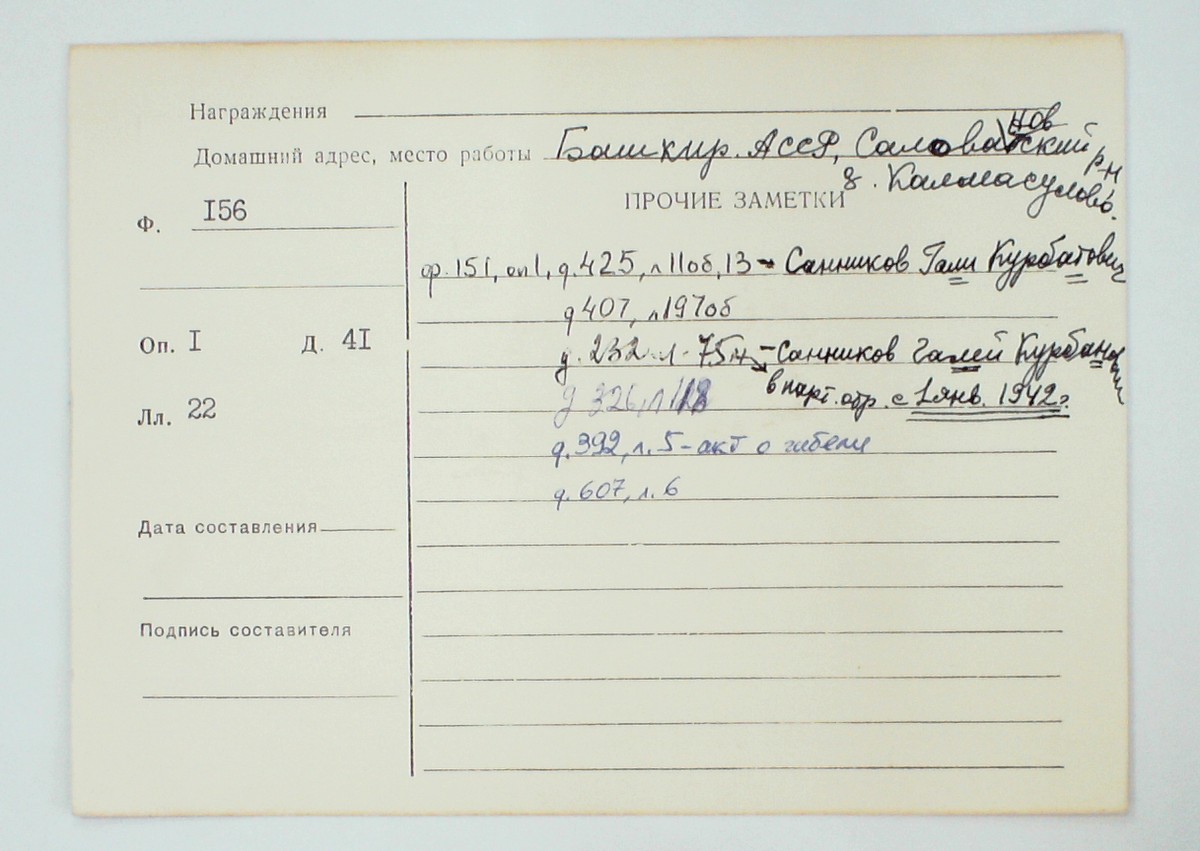 Награждения
Домашний адрес, место работы Башкир. АССР, Саловатский нов р-н
д. Калмасулово.
ПРОЧИЕ ЗАМЕТКИ
Ф. I56
ф.151, оп1, д.425, л11об,13 - Санников Гали Курбатович
д407, л197об
Оп. I Д. 4I
д. 232 л. 75 - Санников Галей Курбанович
в парт. отр. с 1 янв. 1942г.
Лл. 22
д 326, л 118
д.392, л.5 - акт о гибели
д.607, л.6
Дата составления
Подпись составителя